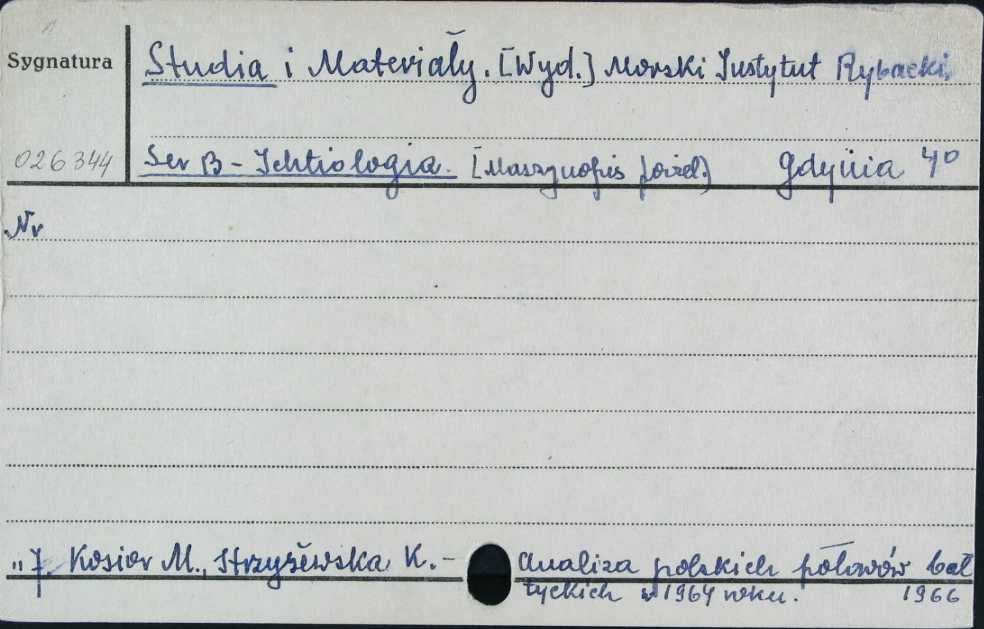 Sygnatura
Studia i Materiały. [Wyd.] Morski Instytut Rybacki.
026344
Ser B - Ichtiologia. [Maszynopis powiel.] Gdynia 4°
Nr
" 7. Kosior M., Strzyżewska K. - Analiza polskich połowów bał
tyckich w 1964 roku. 1966